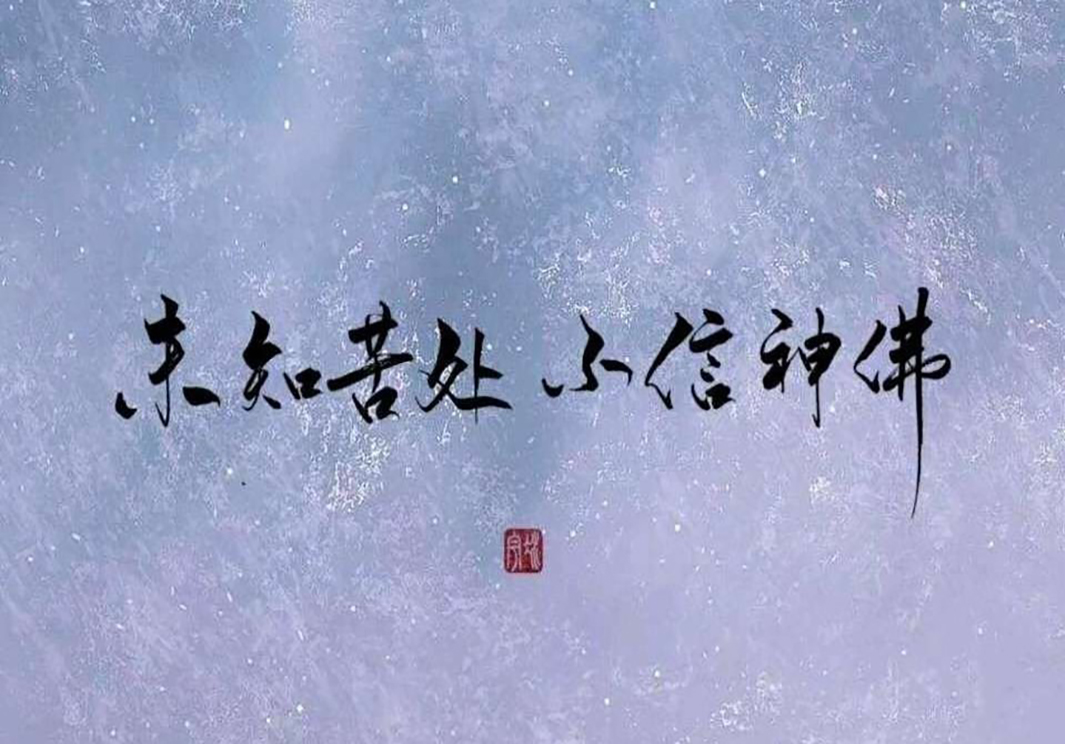 未知苦处 不信神佛